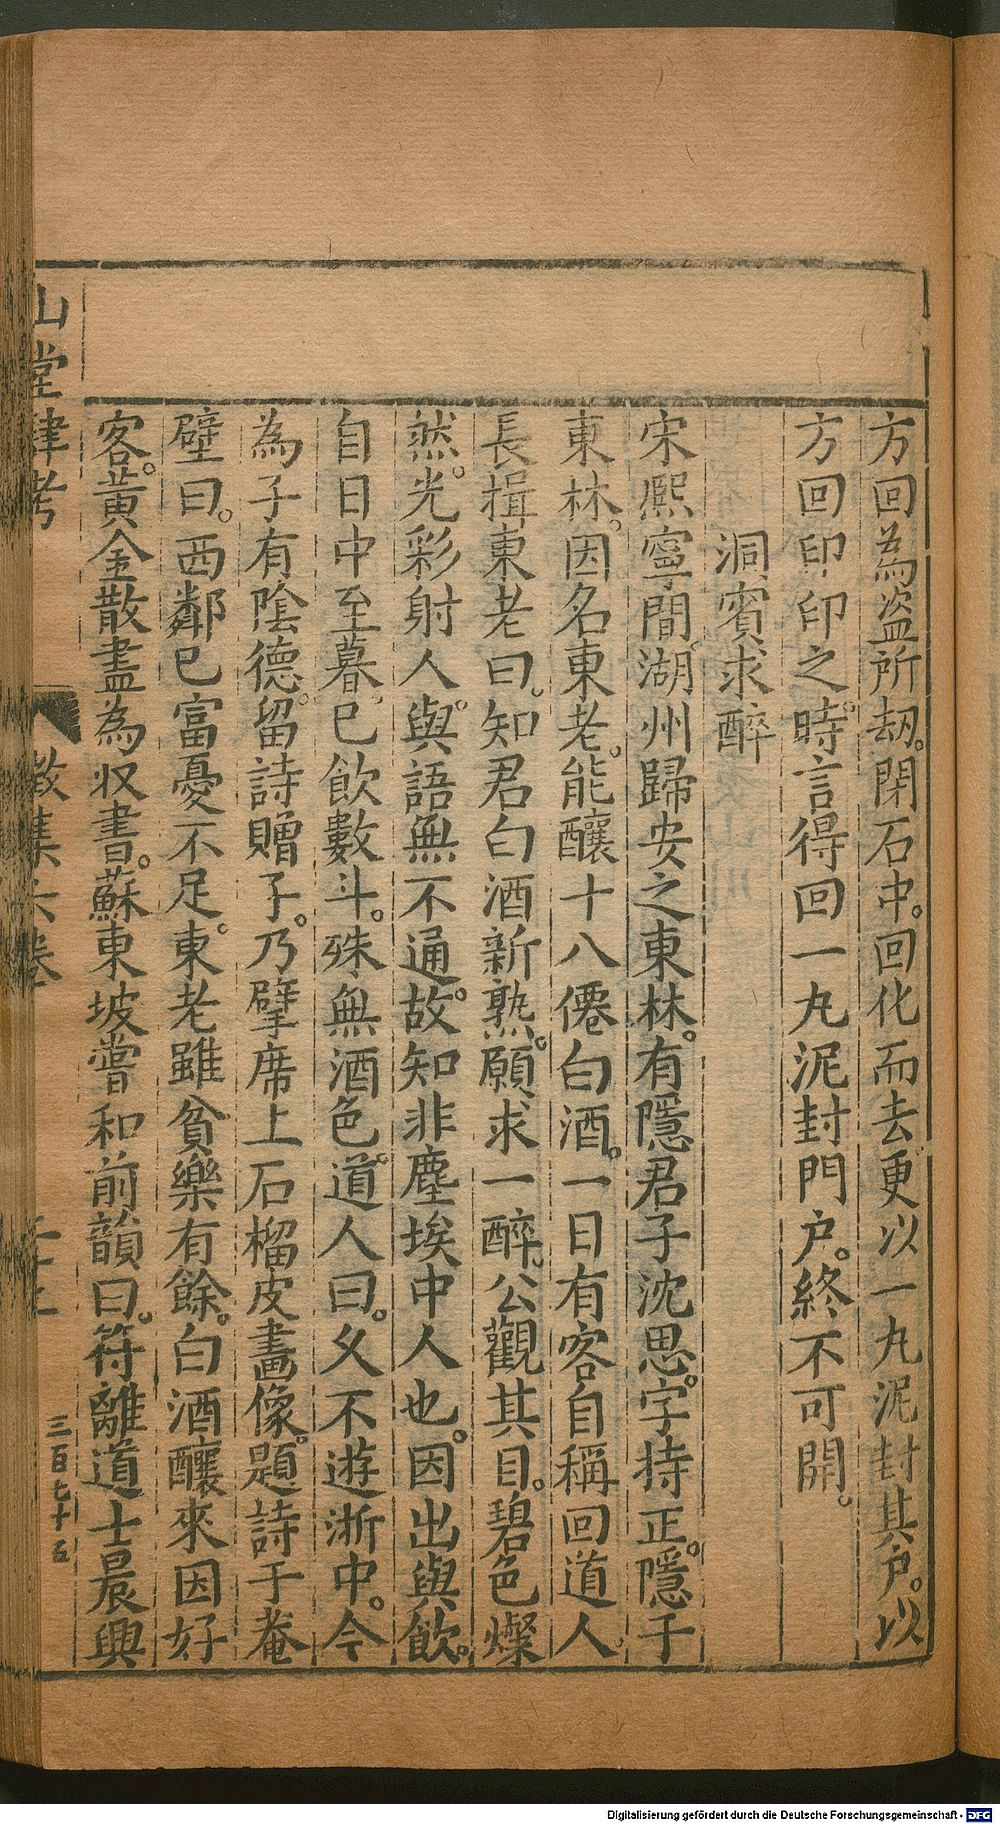 方回為盜所刼。閉石中。回化而去。更以一丸泥封其戶。以
方回印印之。時言得回一丸泥封門戶。終不可開。
洞賓求醉
宋熈寧間。湖州歸安之東林。有隱君子沈思。字持正。隱于
東林。因名東老。能釀十八僊白酒。一日有客自稱回道人。
長揖東老曰。知君白酒新熟。願求一醉。公觀其目。碧色燦
然。光彩射人。與語無不通。故知非塵埃中人也。因出與飲。
自日中至暮。已飲數斗。殊無酒色。道人曰。久不遊浙中。今
為子有陰德。留詩贈子。乃擘席上石榴皮畫像。題詩于菴
壁曰。西鄰已富憂不足。東老雖貧樂有餘。白酒釀來因好
客。黃金散盡為収書。蘇東坡嘗和前韻曰。符離道士晨興
山堂肆考
徵集六卷
三百七十五
Digitalisierung gefördert durch die Deutsche Forschungsgemeinschaft - DFG